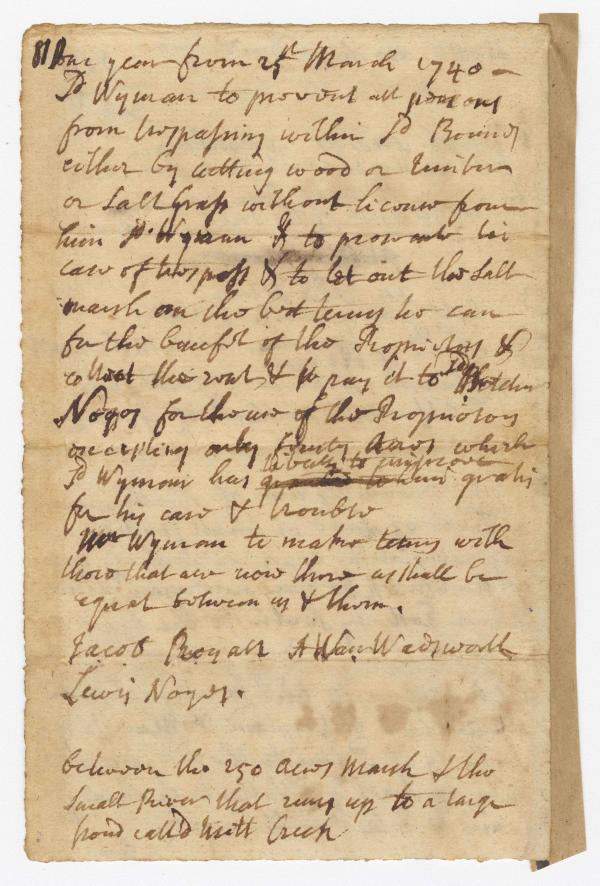 one year from 25th March 1740 —
Sd Wyman to prevent all persons
from trespassing within Sd Bounds
either by cutting wood or timber
or Salt Grass without licence from
him Sd Wyman & to prosecute in
case of trespass & to let out the Salt
marsh on the best terms he can
for the benefit of the Proprietors &
collect the rent & to pay it to Sd
Noyes for the use of the Proprietors
excepting only Acres which
liberty to improve
Sd Wyman has granted to him gratis
for his care & trouble
Mr Wyman to make terms with
those that are now there as shall be
equal between us & them.
Jacob Royall Wadsworth
Lewis Noyes.
between the 250 acres Marsh & the
Small River that runs up to a large
pond calld Mill Creek